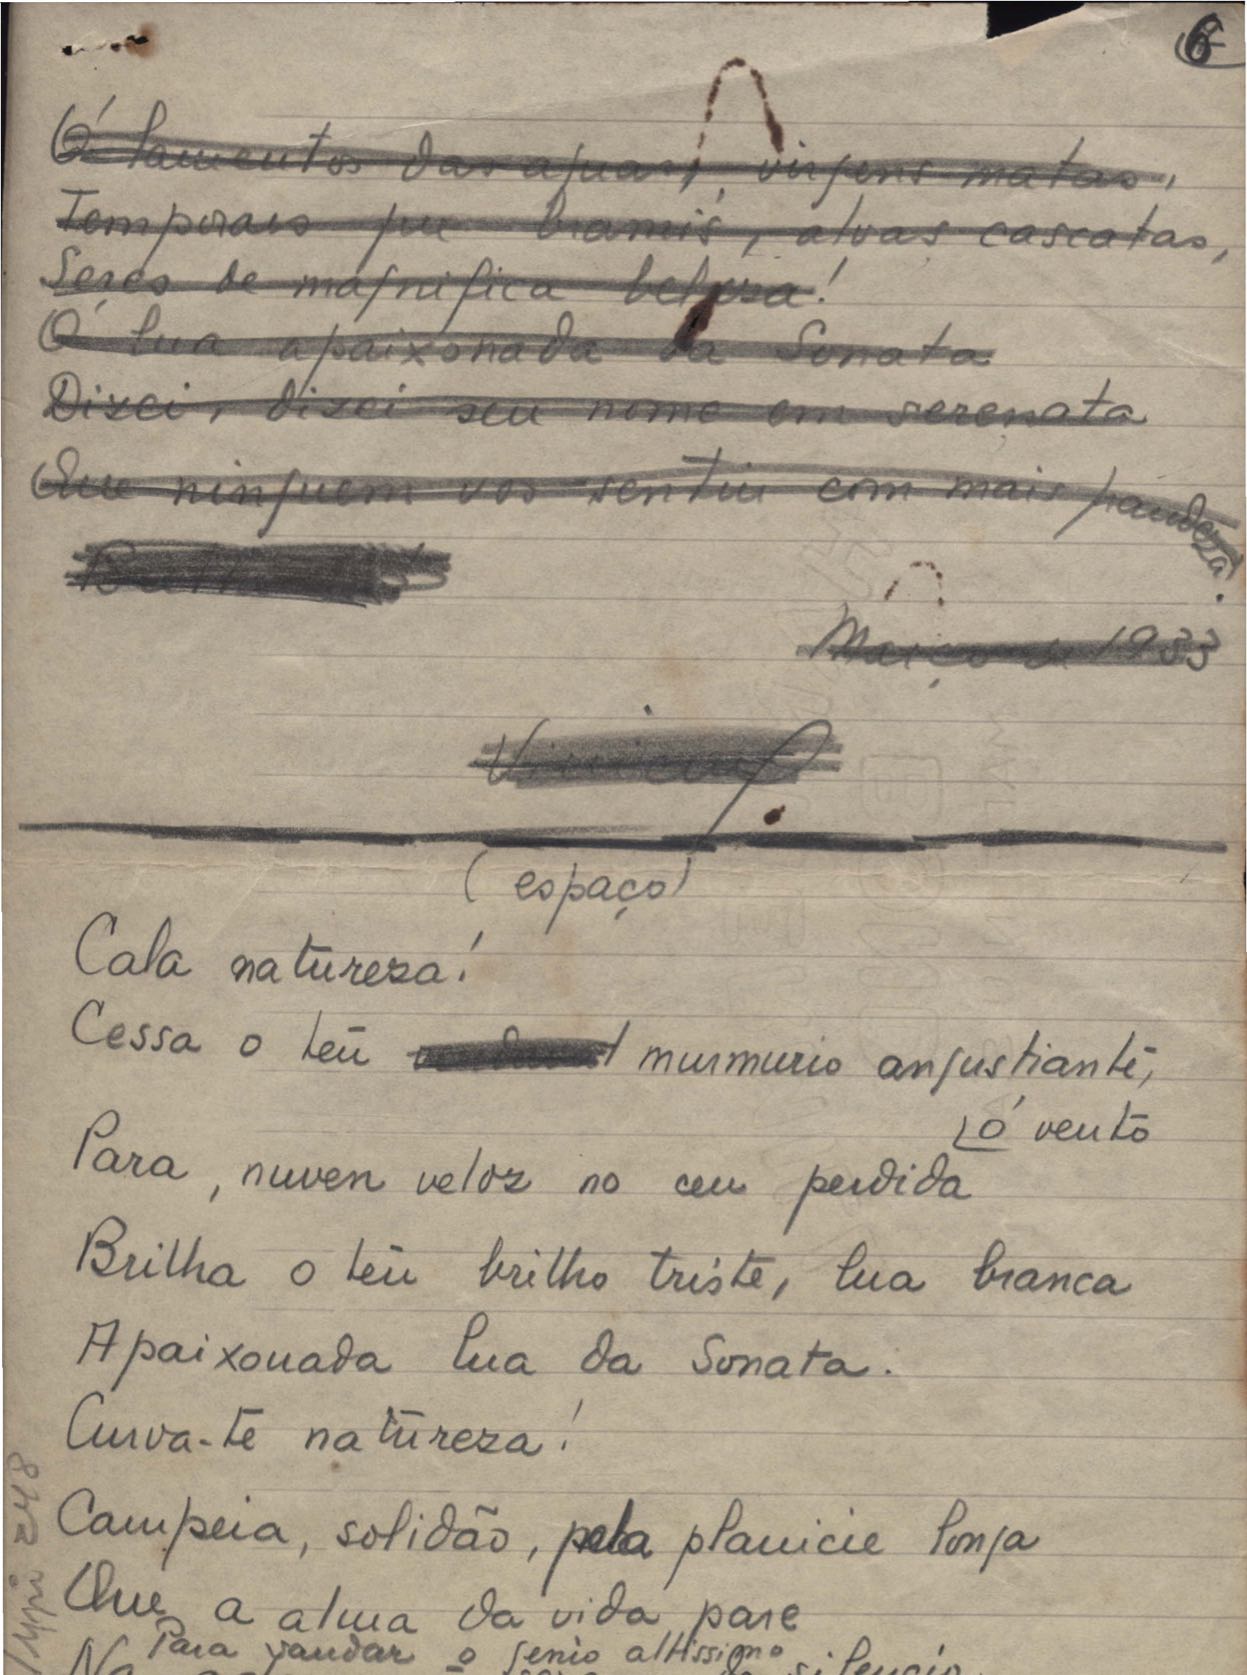 6
Ó lamentos das aguas, virgens matas,
Temporaes que bramis, alvas cascatas,
Seres de magnifica beleza!
Ó lua apaixonada da Sonata
Dizei, dizei seu nome em serenata
Que ninguem vos sentiu com mais grandeza.
Março de 1933
Vinicius
(espaço)
Cala natureza!
Cessa o teu murmurio angustiante,
ó vento
Para, nuven veloz no ceu perdida
Brilha o teu brilho triste, lua branca
Apaixonada lua da Sonata.
Curva-te natureza!
Campeia, solidão, pela planicie longa
Que a alma da vida pare
Para saudar o genio altissimo
silencio